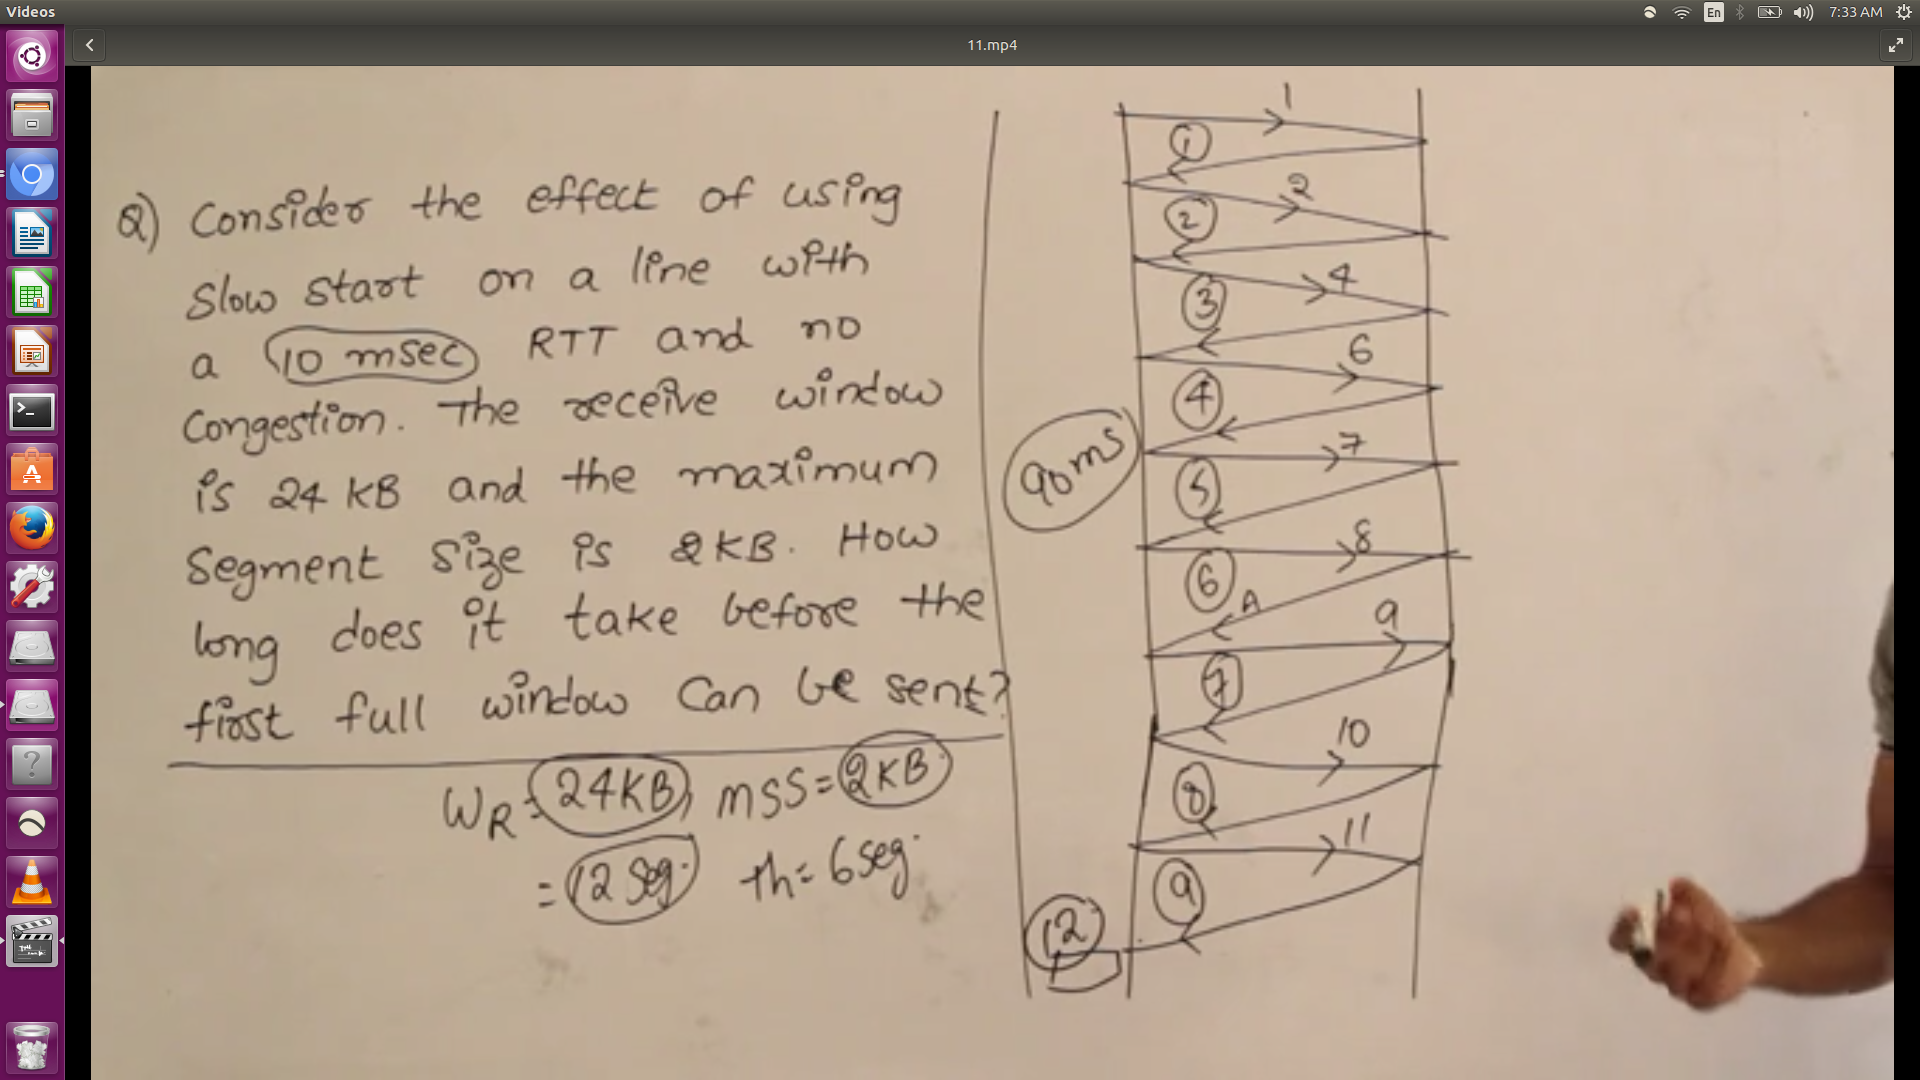 Videos
En
7:33 AM
11.mp4
Q) Consider the effect of using
Slow start on a line with
a 10 msec RTT and no
Congestion. The receive window
is 24 KB and the maximum
Segment Size is 2KB. How
long does it take before the
first full window Can be sent?
WR = 24KB, mss = 2KB
= 12 Seg. th = 6 seg.
1
1
2
2
4
3
6
4
90ms
7
5
8
6
A
9
7
10
8
11
9
12